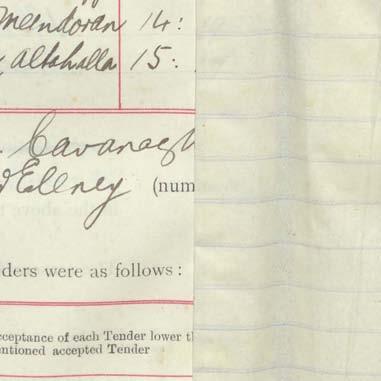 Meendoran 14:
Altahalla 15:
Cavanagh
(num
ders were as follows:
cceptance of each Tender lower th
entioned accepted Tender